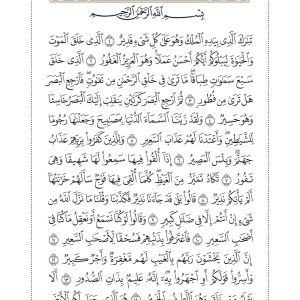 بِسْمِ اللَّهِ الرَّحْمَٰنِ الرَّحِيمِ
تَبَارَكَ الَّذِي بِيَدِهِ الْمُلْكُ وَهُوَ عَلَىٰ كُلِّ شَيْءٍ قَدِيرٌ ١ الَّذِي خَلَقَ الْمَوْتَ
وَالْحَيَاةَ لِيَبْلُوَكُمْ أَيُّكُمْ أَحْسَنُ عَمَلًا وَهُوَ الْعَزِيزُ الْغَفُورُ ٢ الَّذِي خَلَقَ
سَبْعَ سَمَاوَاتٍ طِبَاقًا مَا تَرَىٰ فِي خَلْقِ الرَّحْمَٰنِ مِنْ تَفَاوُتٍ فَارْجِعِ الْبَصَرَ
هَلْ تَرَىٰ مِنْ فُطُورٍ ٣ ثُمَّ ارْجِعِ الْبَصَرَ كَرَّتَيْنِ يَنْقَلِبْ إِلَيْكَ الْبَصَرُ خَاسِئًا
وَهُوَ حَسِيرٌ ٤ وَلَقَدْ زَيَّنَّا السَّمَاءَ الدُّنْيَا بِمَصَابِيحَ وَجَعَلْنَاهَا رُجُومًا
لِلشَّيَاطِينِ وَأَعْتَدْنَا لَهُمْ عَذَابَ السَّعِيرِ ٥ وَلِلَّذِينَ كَفَرُوا بِرَبِّهِمْ عَذَابُ
جَهَنَّمَ وَبِئْسَ الْمَصِيرُ ٦ إِذَا أُلْقُوا فِيهَا سَمِعُوا لَهَا شَهِيقًا وَهِيَ
تَفُورُ ٧ تَكَادُ تَمَيَّزُ مِنَ الْغَيْظِ كُلَّمَا أُلْقِيَ فِيهَا فَوْجٌ سَأَلَهُمْ خَزَنَتُهَا
أَلَمْ يَأْتِكُمْ نَذِيرٌ ٨ قَالُوا بَلَىٰ قَدْ جَاءَنَا نَذِيرٌ فَكَذَّبْنَا وَقُلْنَا مَا نَزَّلَ اللَّهُ مِنْ
شَيْءٍ إِنْ أَنْتُمْ إِلَّا فِي ضَلَالٍ كَبِيرٍ ٩ وَقَالُوا لَوْ كُنَّا نَسْمَعُ أَوْ نَعْقِلُ مَا كُنَّا فِي
أَصْحَابِ السَّعِيرِ ١٠ فَاعْتَرَفُوا بِذَنْبِهِمْ فَسُحْقًا لِأَصْحَابِ السَّعِيرِ ١١
إِنَّ الَّذِينَ يَخْشَوْنَ رَبَّهُمْ بِالْغَيْبِ لَهُمْ مَغْفِرَةٌ وَأَجْرٌ كَبِيرٌ ١٢
وَأَسِرُّوا قَوْلَكُمْ أَوِ اجْهَرُوا بِهِ إِنَّهُ عَلِيمٌ بِذَاتِ الصُّدُورِ ١٣ أَلَا